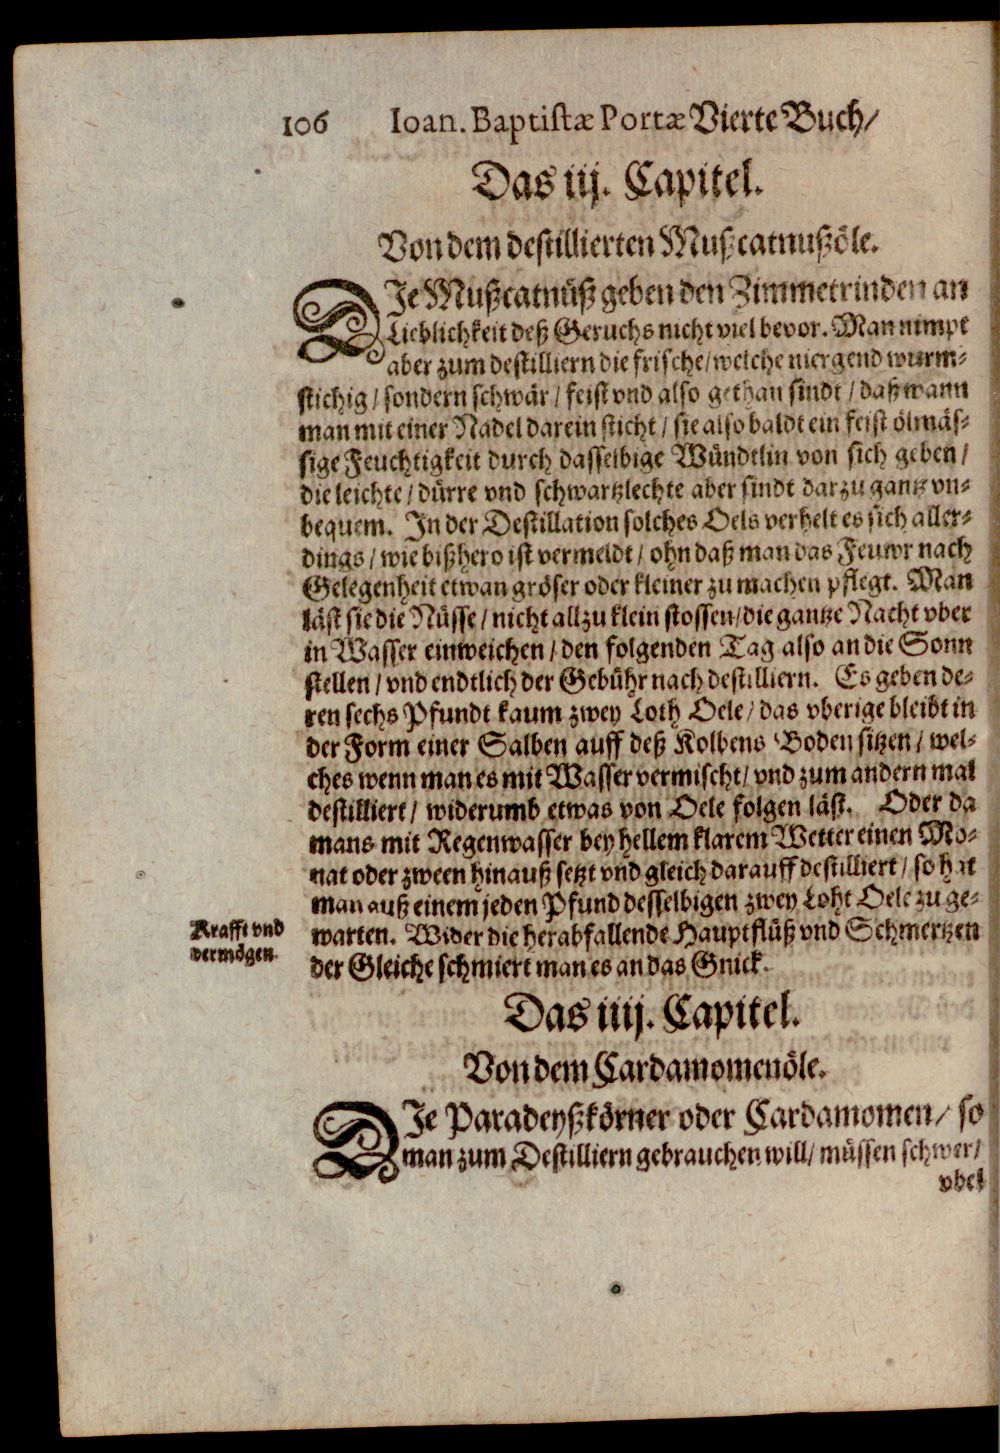 106 Ioan. Baptistæ Portæ Vierte Buch/
Das iij. Capitel.
Von dem destillierten Mußcatnußöle.
DIe Mußcatnüß geben den Zimmetrinden an
Lieblichkeit deß Geruchs nicht viel bevor. Man nimpt
aber zum destilliern die frische/welche niergend wurm-
stichig/sondern schwär/feist vnd also gethan sindt/daß wann
man mit einer Nadel darein sticht/sie also baldt ein feist ölmäs-
sige Feuchtigkeit durch dasselbige Wündtlin von sich geben/
die leichte/dürre vnd schwartzlechte aber sindt darzu gantz vn-
bequem. In der Destillation solches Oels verhelt es sich aller-
dings/wie bißhero ist vermeldt/ohn daß man das Feuwr nach
Gelegenheit etwan gröser oder kleiner zu machen pflegt. Man
läst sie die Nüsse/nicht allzu klein stossen/die gantze Nacht vber
in Wasser einweichen/den folgenden Tag also an die Sonn
stellen/vnd endtlich der Gebühr nach destilliern. Es geben de-
ren sechs Pfundt kaum zwey Loth Oele/das vberige bleibt in
der Form einer Salben auff deß Kolbens Boden sitzen/wel-
ches wenn man es mit Wasser vermischt/vnd zum andern mal
destilliert/widerumb etwas von Oele folgen läst. Oder da
mans mit Regenwasser bey hellem klarem Wetter einen Mo-
nat oder zween hinauß setzt vnd gleich darauff destilliert/so hat
man auß einem jeden Pfund desselbigen zwey Loht Oele zu ge-
warten. Wider die herabfallende Hauptflüß vnd Schmertzen
der Gleiche schmiert man es an das Gnick.
Krafft vnd
vermögen.
Das iiij. Capitel.
Von dem Cardamomenöle.
DIe Paradeyßkörner oder Cardamomen/so
man zum Destilliern gebrauchen will/müssen schwer/
vbel